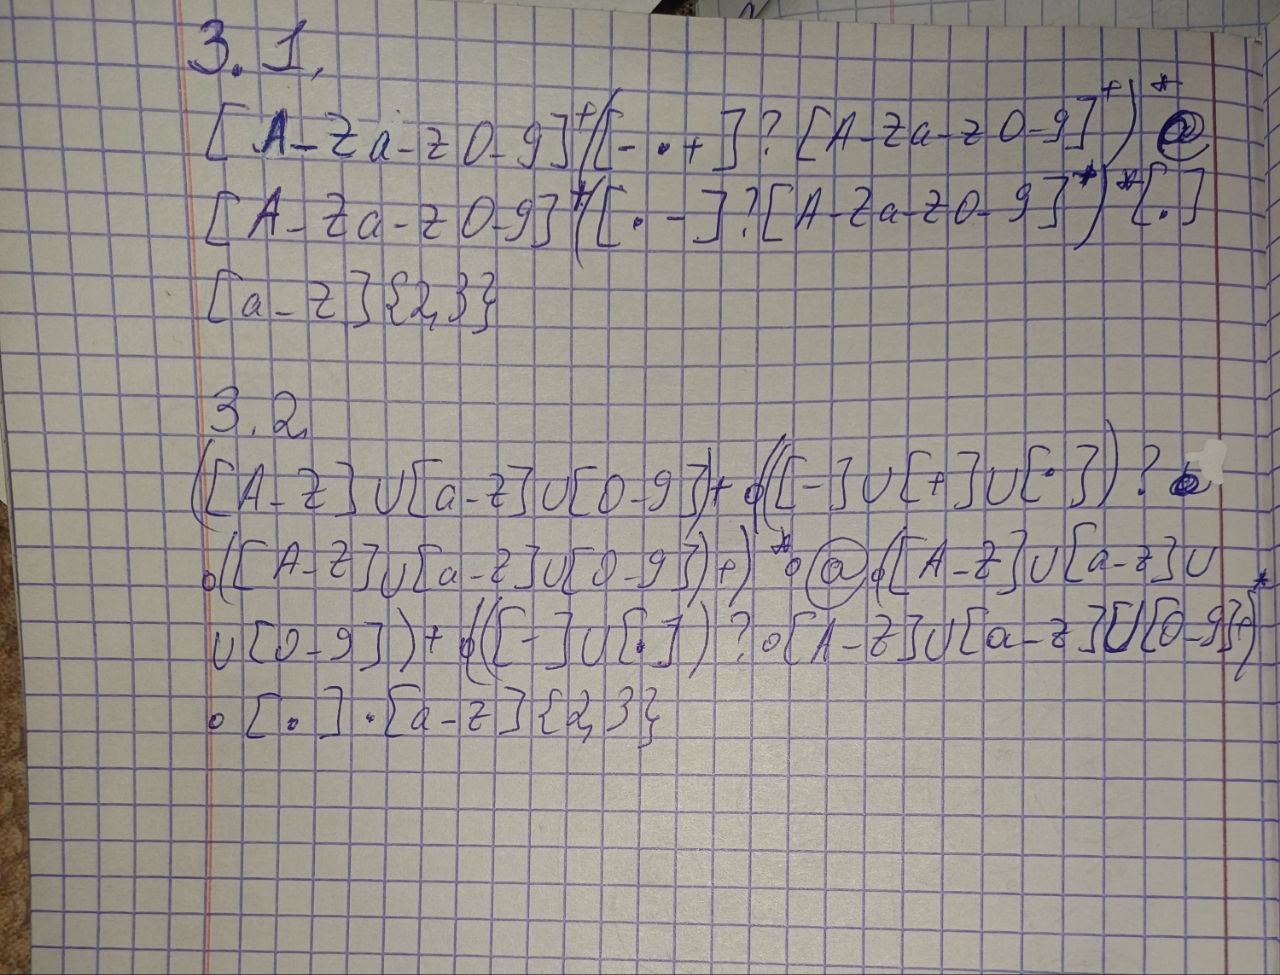 3.1.
[A-Za-z0-9]+([-.+]?[A-Za-z0-9]+)*@
[A-Za-z0-9]+([.-]?[A-Za-z0-9]+)*[.]
[a-z]{2,3}
3.2.
([A-Z]∪[a-z]∪[0-9])+∘(([-]∪[+]∪[.])?∘
∘([A-Z]∪[a-z]∪[0-9])+)*∘@∘([A-Z]∪[a-z]∪
∪[0-9])+∘(([-]∪[.])?∘[A-Z]∪[a-z]∪[0-9]+)*
∘[.]·[a-z]{2,3}